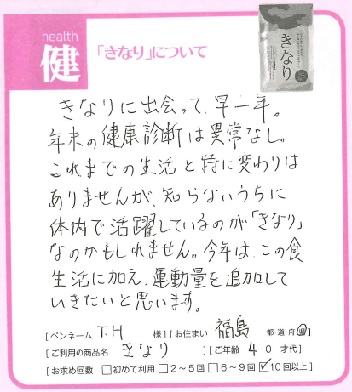 health
健
「きなり」について
きなり
きなりに出会って、早一年。
年末の健康診断は異常なし。
これまでの生活と特に変わりは
ありませんが、知らないうちに
体内で活躍しているのが「きなり」
なのかもしれません。今年は、この食
生活に加え、運動量を追加して
いきたいと思います。
[ペンネーム T.H 様] [お住まい 福島 都道府県]
[ご利用の商品名 きなり ] [ご年齢 40 才代]
[お求め回数 □初めて利用 □2～5回 □6～9回 ☑10回以上]